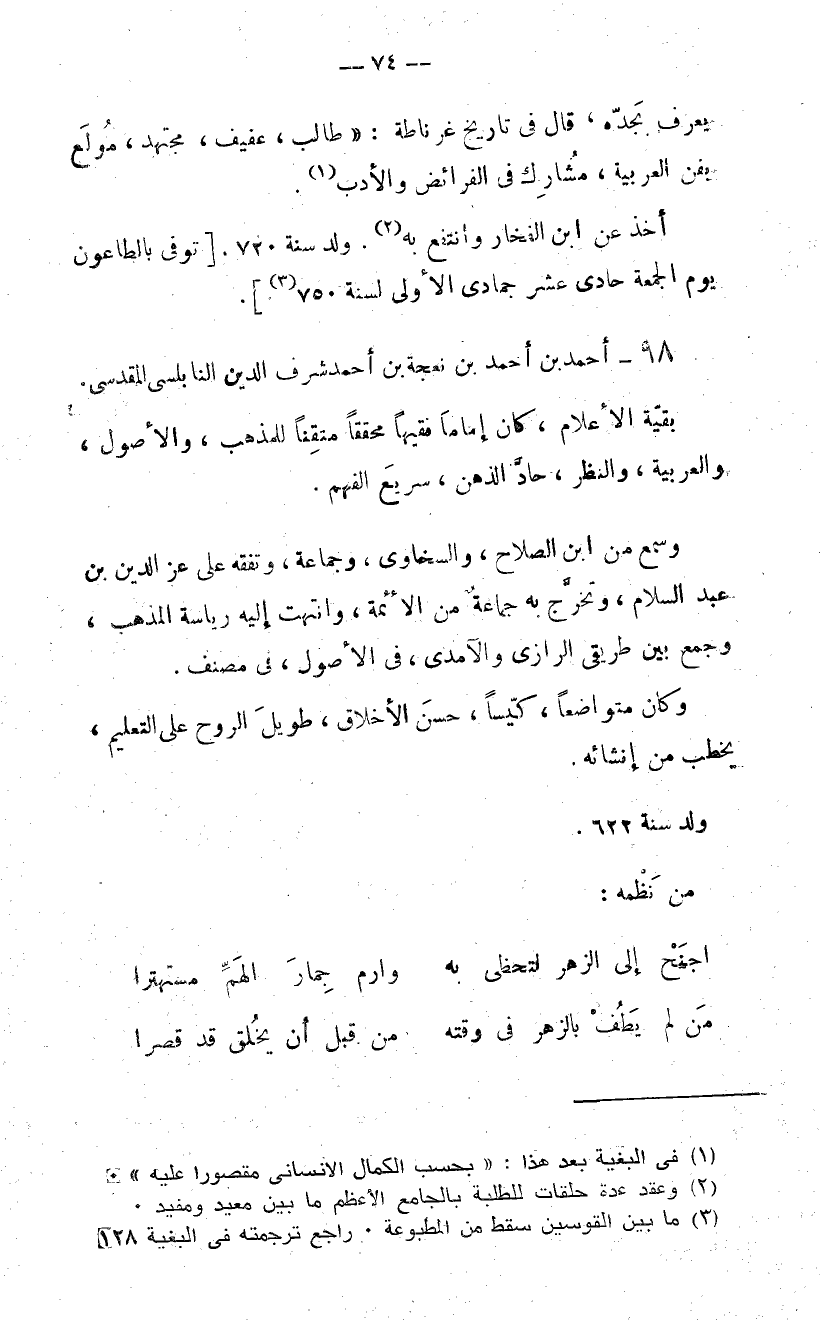 — ٧٤ —
يعرف بَجدّه ، قال فى تاريخ غرناطة : « طالب ، عفيف ، مجتهد ، مُولَع
بفن العربية ، مُشارِك فى الفرائض والأدب(١) .
أخذ عن ابن الفخار وانتفع به(٢) . ولد سنة ٧٢٠ . [ توفى بالطاعون
يوم الجمعة حادى عشر جمادى الأولى لسنة ٧٥٠(٣) ] .
٩٨ – أحمد بن أحمد بن نعجة بن أحمد شرف الدين النابلسى المقدسى .
بقيّة الأعلام ، كان إماماً فقيهاً محققاً متقِناً للمذهب ، والأصول ،
والعربية ، والنظر ، حادَّ الذهن ، سريعَ الفهم .
وسمع من ابن الصلاح ، والسخاوى ، وجماعة ، وتفقه على عز الدين بن
عبد السلام ، وتخرَّج به جماعةٌ من الأئمة ، وانتهت إليه رياسة المذهب ،
وجمع بين طريقى الرازى والآمدى ، فى الأصول ، فى مصنف .
وكان متواضعاً ، كيّساً ، حسنَ الأخلاق ، طويلَ الروح على التعليم ،
يخطب من إنشائه .
ولد سنة ٦٢٢ .
من نَظْمه :
اجنَحْ إلى الزهر لتحظى به وارم جِمارَ الهَمِّ مستهترا
مَن لم يَطُفْ بالزهر فى وقته من قبل أن يحُلق قد قصرا
(١) فى البغية بعد هذا : « بحسب الكمال الانسانى مقصورا عليه » .
(٢) وعقد عدة حلقات للطلبة بالجامع الأعظم ما بين معيد ومفيد .
(٣) ما بين القوسين سقط من المطبوعة . راجع ترجمته فى البغية ١٢٨